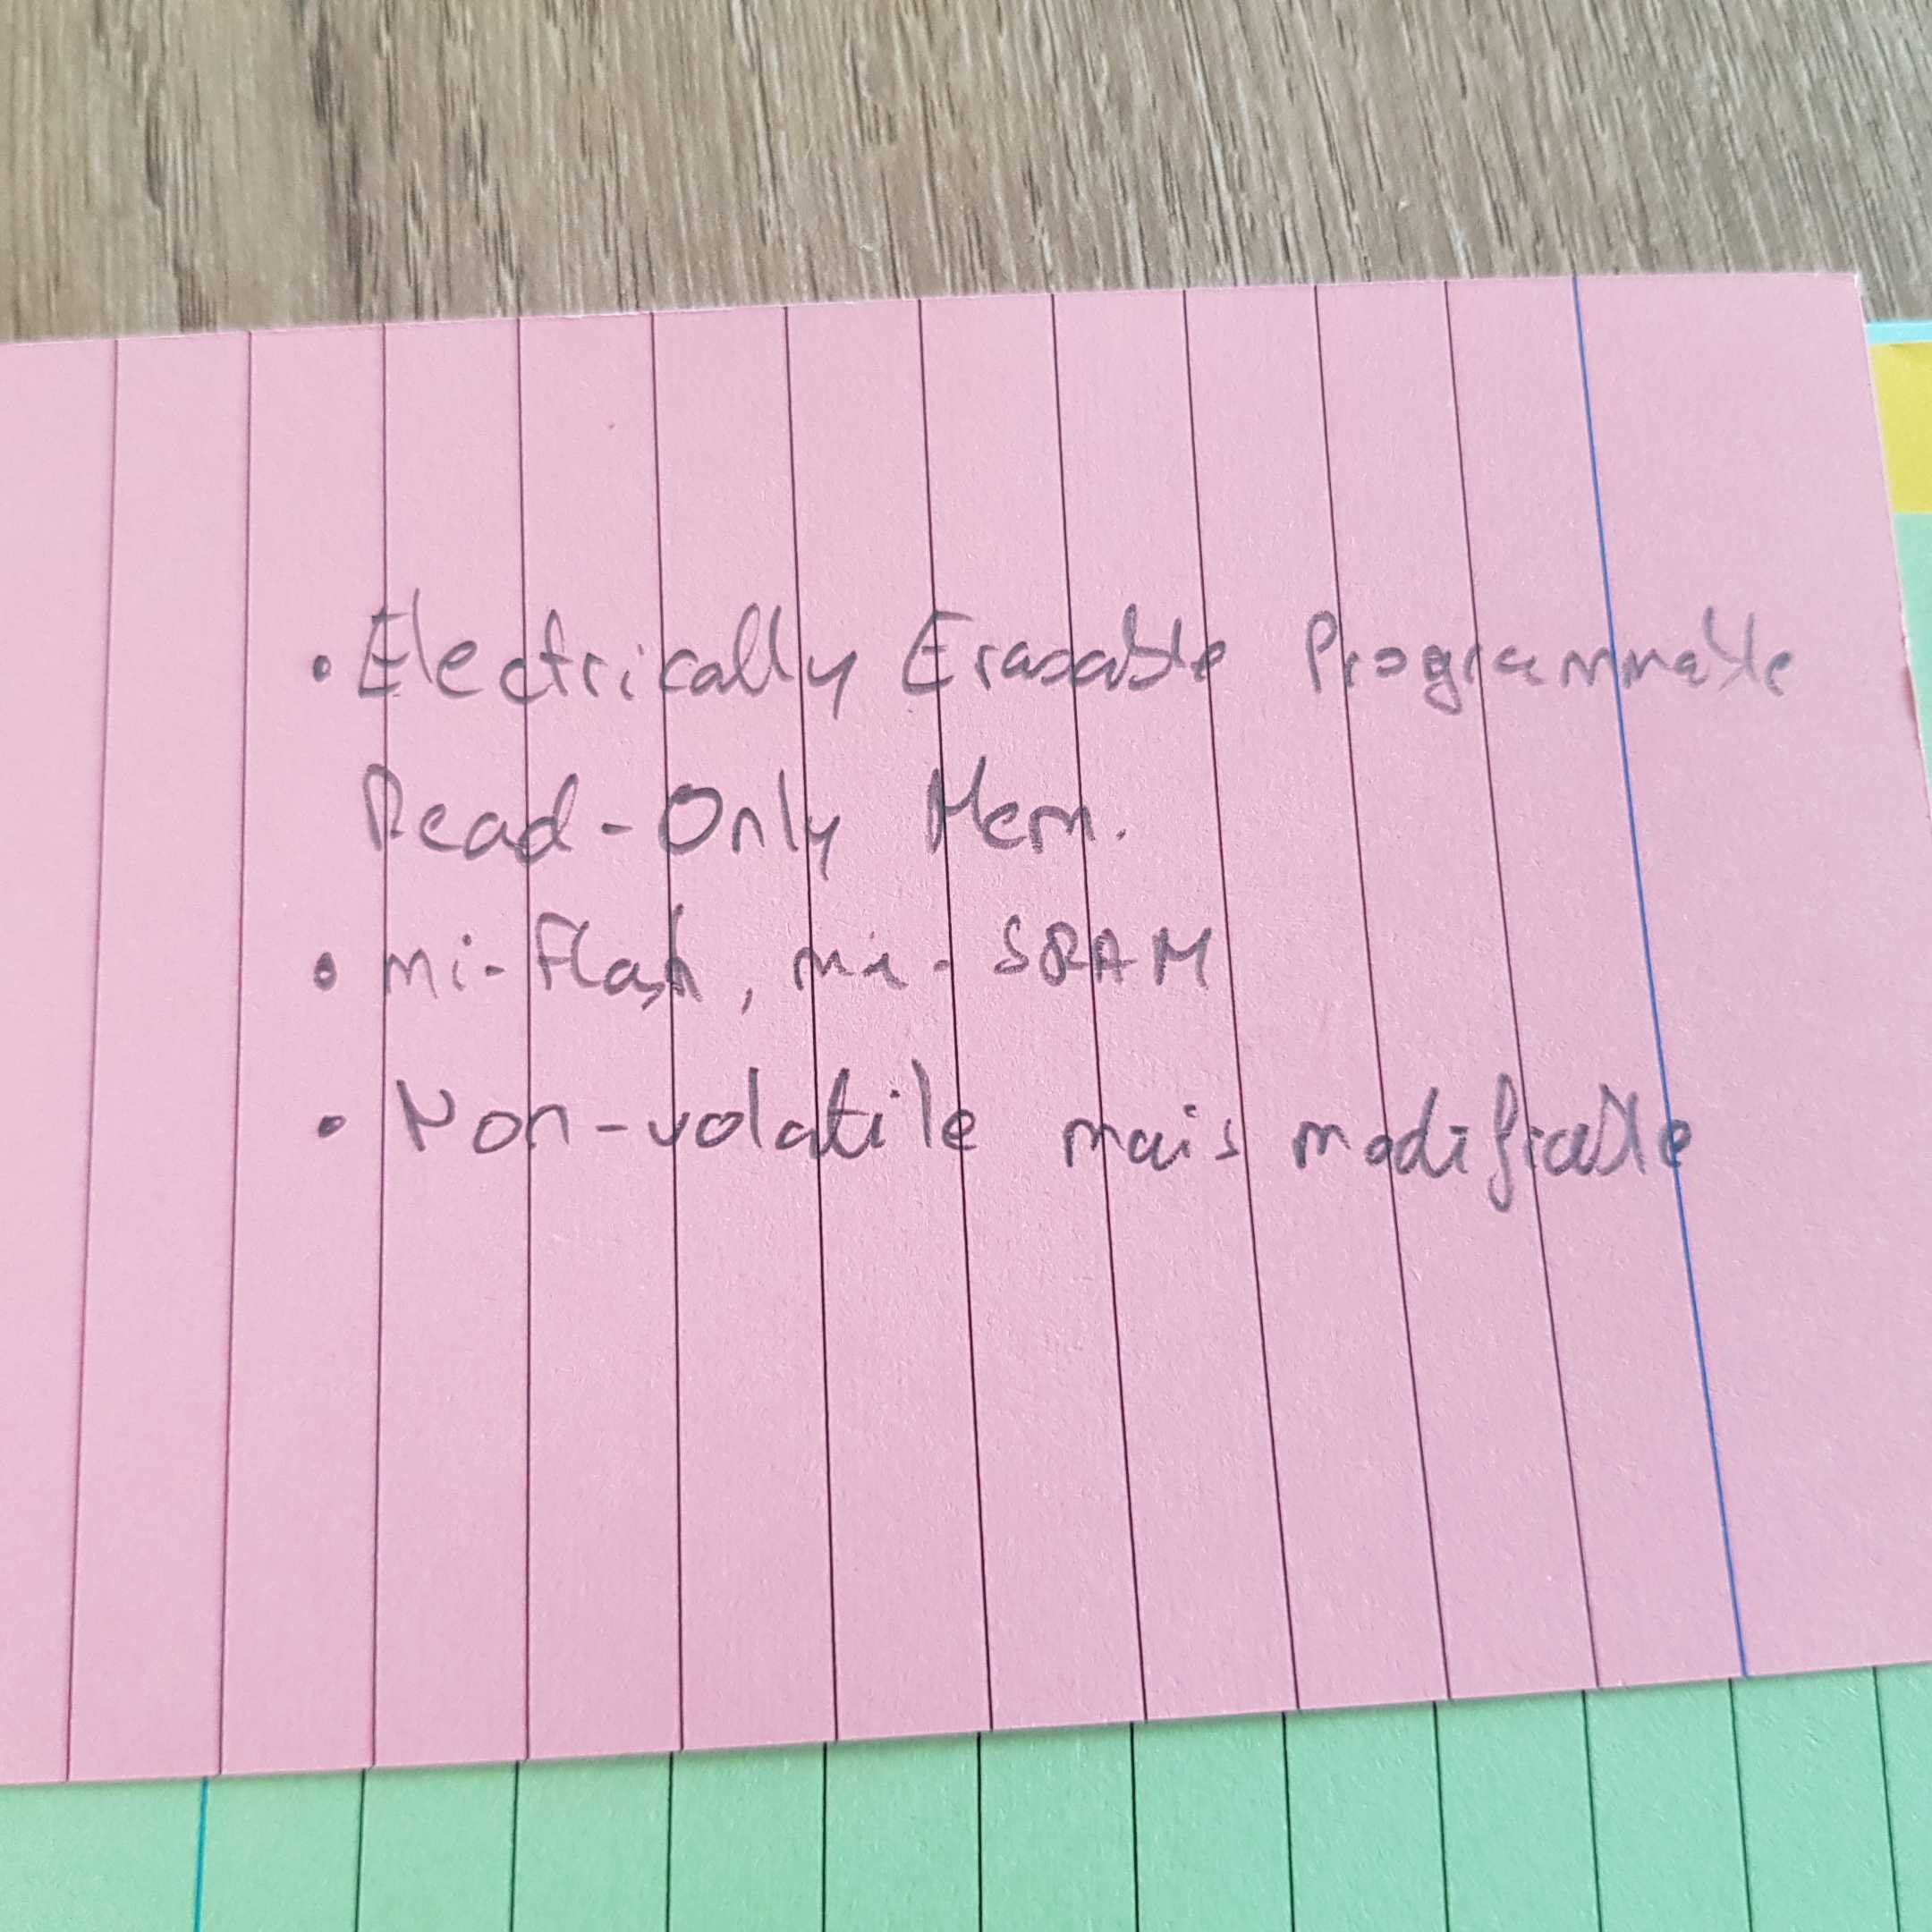 • Electrically Erasable Programmable
Read-Only Mem.
• mi-Flash, mi-SRAM
• Non-volatile mais modifiable